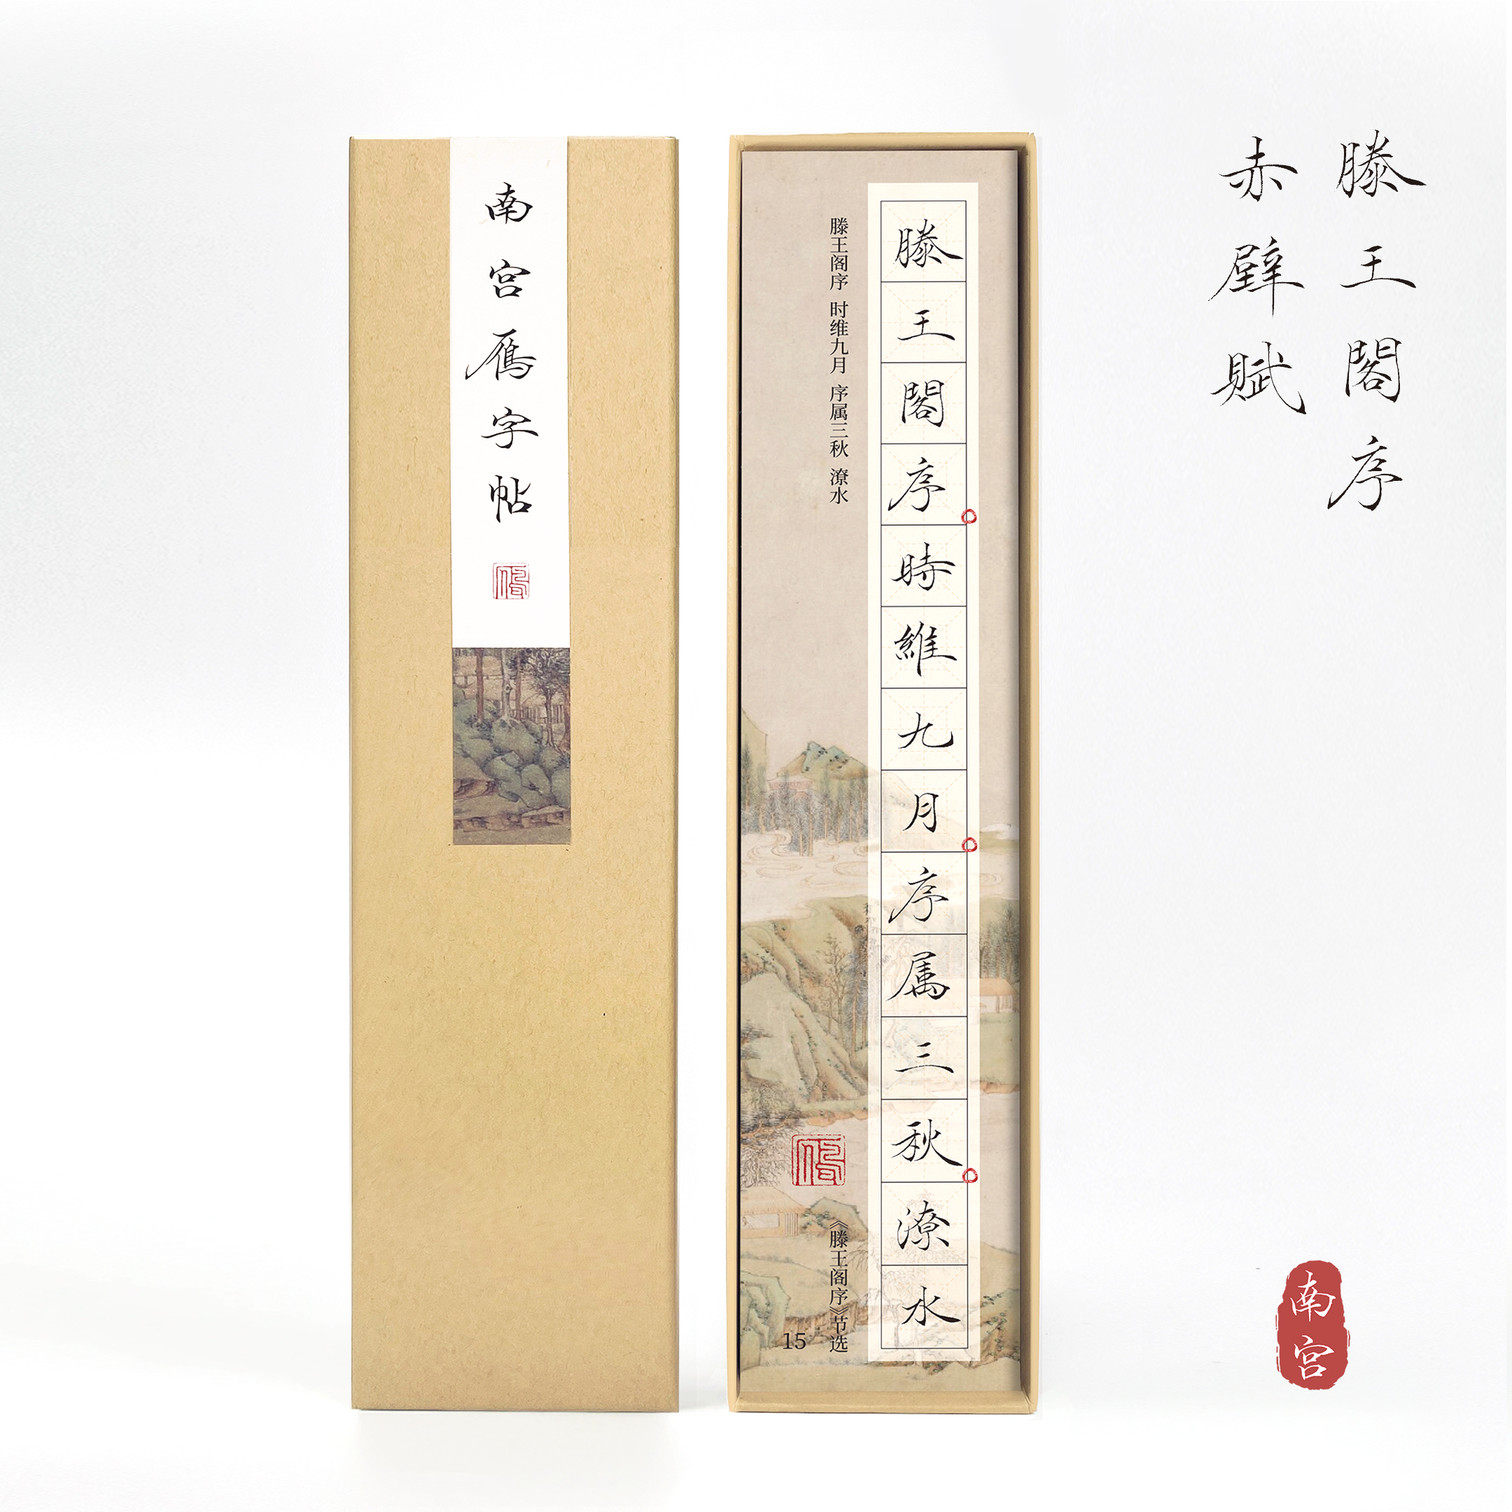 滕王閣序
赤壁賦
南宫雁字帖
滕王閣序時維九月序属三秋潦水
滕王阁序 时维九月 序属三秋 潦水
《滕王阁序》节选
15
南宫